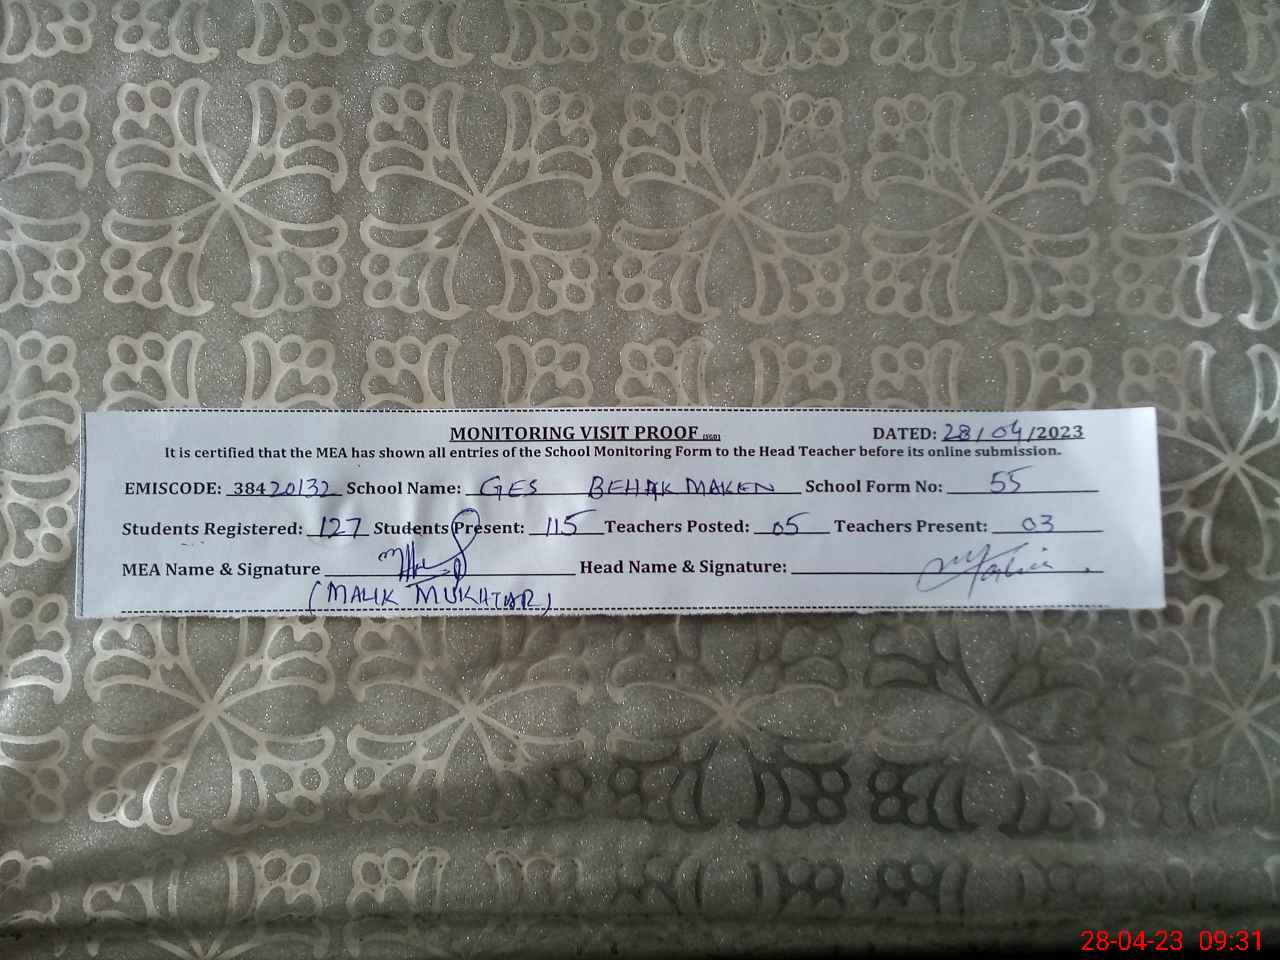 MONITORING VISIT PROOF
DATED: 28/04/2023
It is certified that the MEA has shown all entries of the School Monitoring Form to the Head Teacher before its online submission.
EMISCODE: 38420132 School Name: GES BEHAK MAKEN School Form No: 55
Students Registered: 127 Students Present: 115 Teachers Posted: 05 Teachers Present: 03
MEA Name & Signature Head Name & Signature:
(MALIK MUKHTAR)
28-04-23 09:31